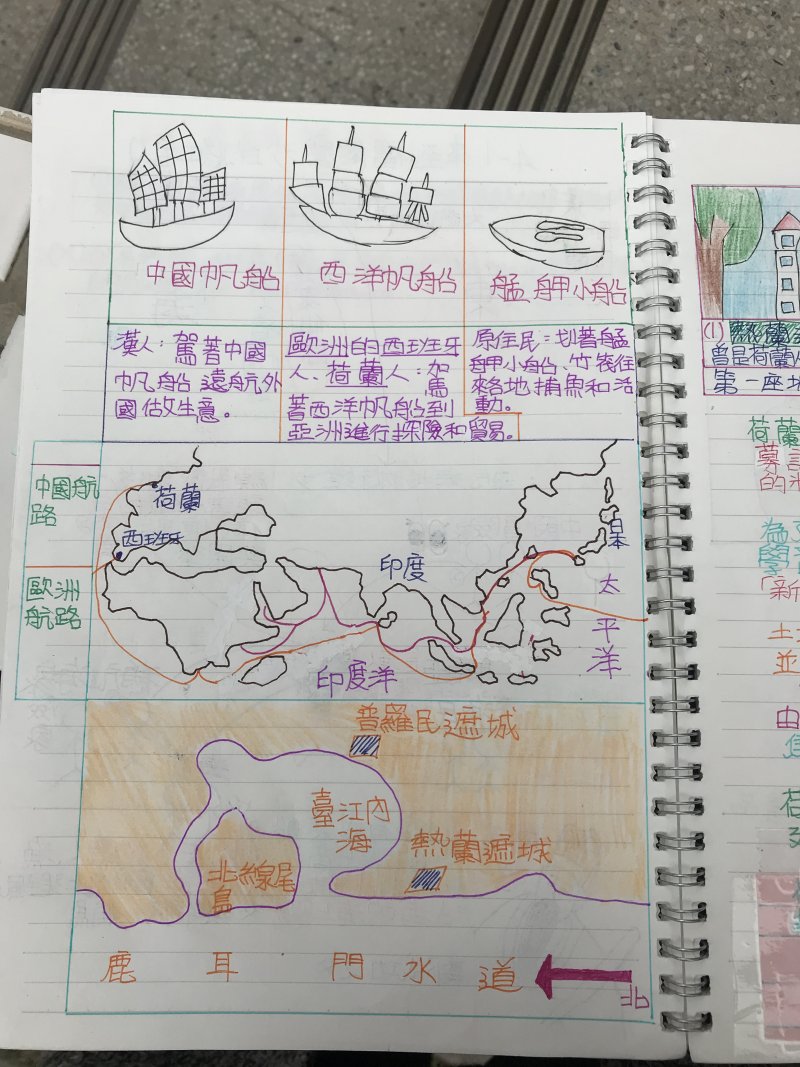 中國帆船
西洋帆船
艋舺小船
漢人：駕著中國
帆船遠航外
國做生意。
歐洲的西班牙
人、荷蘭人：駕
著西洋帆船到
亞洲進行探險和貿易。
原住民：划著艋
舺小船、竹筏往
來各地捕魚和活
動。
中國航
路
歐洲
航路
荷蘭
西班牙
印度
日本
太平洋
印度洋
普羅民遮城
臺江內
海
熱蘭遮城
北線尾
島
鹿耳門水道
北
(1)
曾是荷蘭
第一座
荷蘭
的
為
學
「新
土
並
由